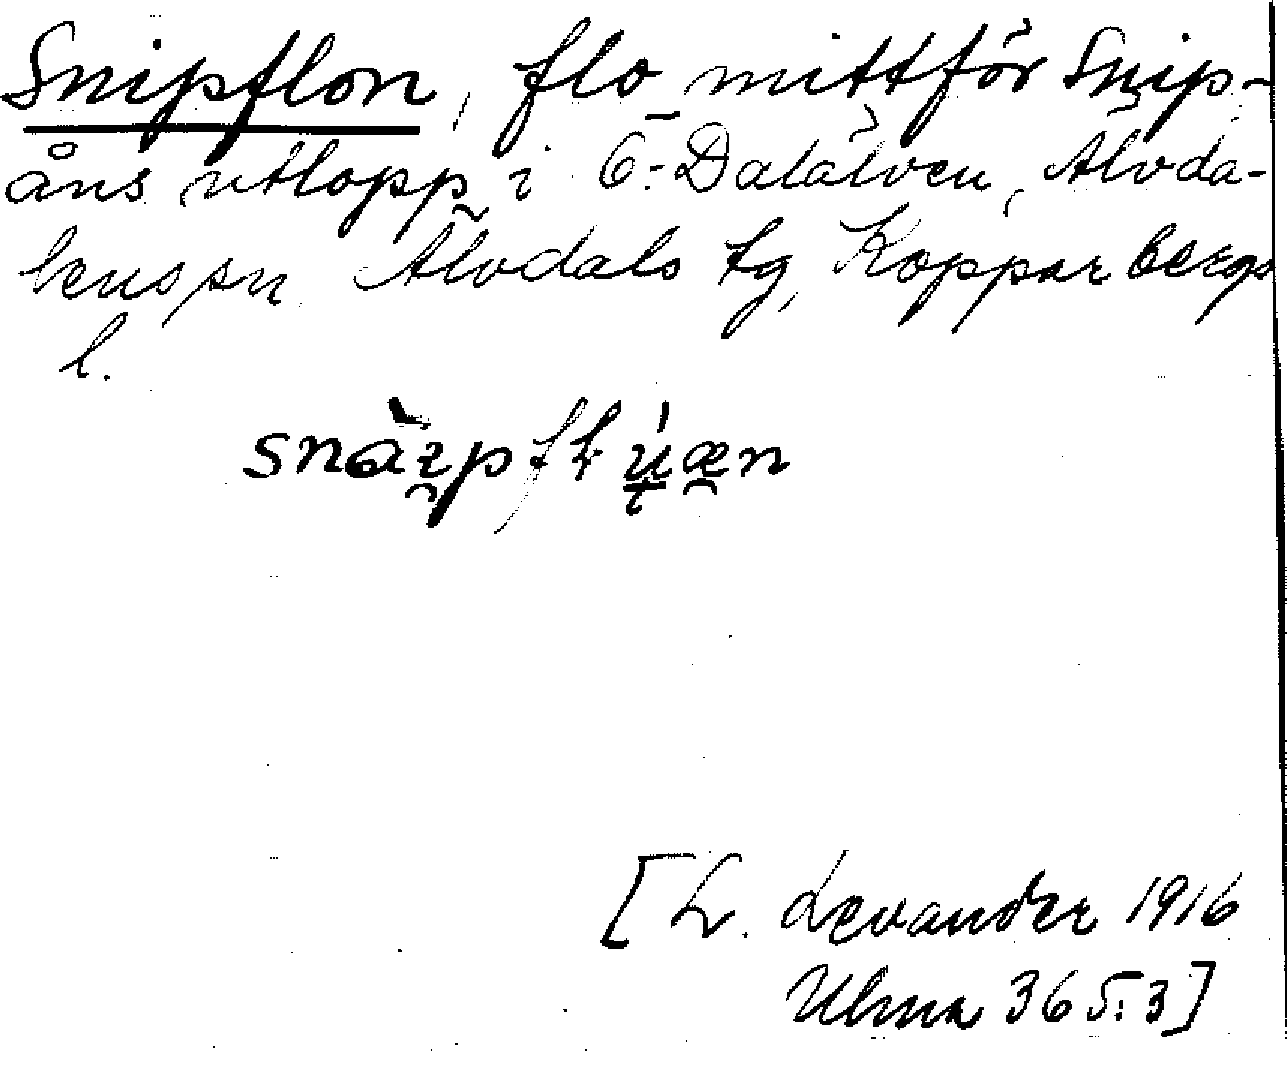 Snipflon, flo mittför Snip-
åns utlopp i Ö-Dalälven, Älvda-
lens sn Älvdals tg, Kopparbergs
l.
[L. Levander 1916
Ulma 365:3]